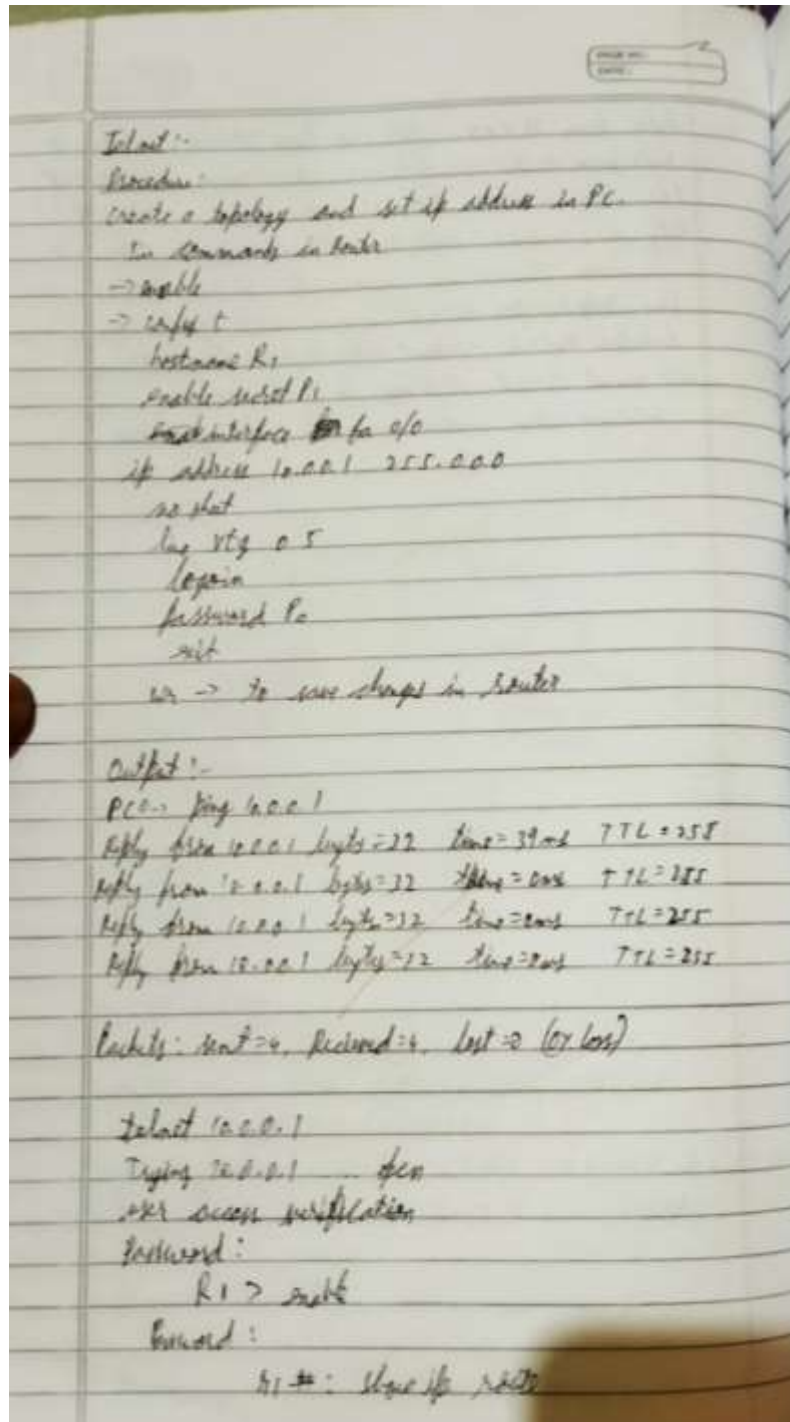 Telnet :-
Procedure:
create a topology and set ip address in PC.
In commands in Router
-> enable
-> config t
hostname R1
enable secret P1
interface fa 0/0
ip address 10.0.0.1 255.0.0.0
no shut
line vty 0 5
login
password P0
exit
wr -> to save changes in router
Output :-
PC0-> ping 10.0.0.1
Reply from 10.0.0.1 bytes=32 time=39ms TTL=255
Reply from 10.0.0.1 bytes=32 time=0ms TTL=255
Reply from 10.0.0.1 bytes=32 time=0ms TTL=255
Reply from 10.0.0.1 bytes=32 time=0ms TTL=255
Packets: sent=4, Recieved=4, lost=0 (0% loss)
telnet 10.0.0.1
Trying 10.0.0.1 ... open
user access verification
Password:
R1 > enable
Password:
R1 #: show ip route